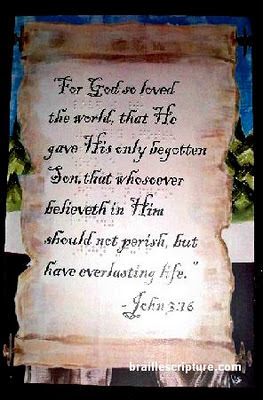 For God so loved
the world, that He
gave His only begotten
Son, that whosoever
believeth in Him
should not perish, but
have everlasting life."
- John 3:16
braillescripture.com